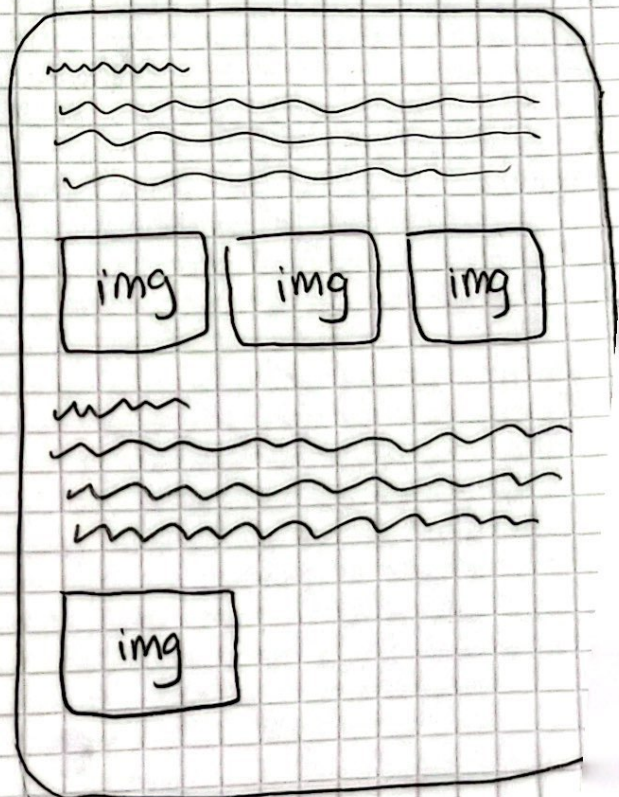 img img img
img